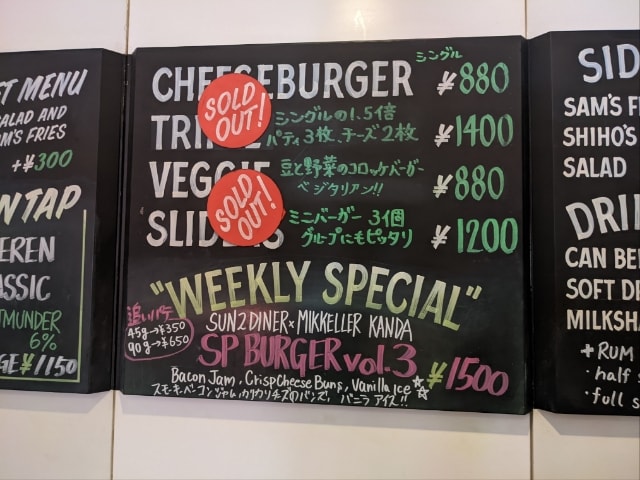 ET MENU
SALAD AND
M'S FRIES
+¥300
N TAP
EREN
ASSIC
TMUNDER
6%
GE¥1150
CHEESEBURGER シングル ¥880
SOLD OUT!
シングルの1.5倍
パティ3枚、チーズ2枚 ¥1400
VEGGIE 豆と野菜のコロッケバーガー
ベジタリアン!! ¥880
SOLD OUT!
SLIDERS ミニバーガー 3個
グループにもピッタリ ¥1200
"WEEKLY SPECIAL"
追いパテ
45g→¥350
90g→¥650
SUN2DINER×MIKKELLER KANDA
SP BURGER vol.3 ¥1500
Bacon Jam, Crisp Cheese Buns, Vanilla Ice
スモーキーベーコンジャム、カリカリチーズのバンズ、バニラアイス!!
SID
SAM'S F
SHIHO'S
SALAD
DRI
CAN BE
SOFT D
MILKSHA
+RUM
・half s
・full s